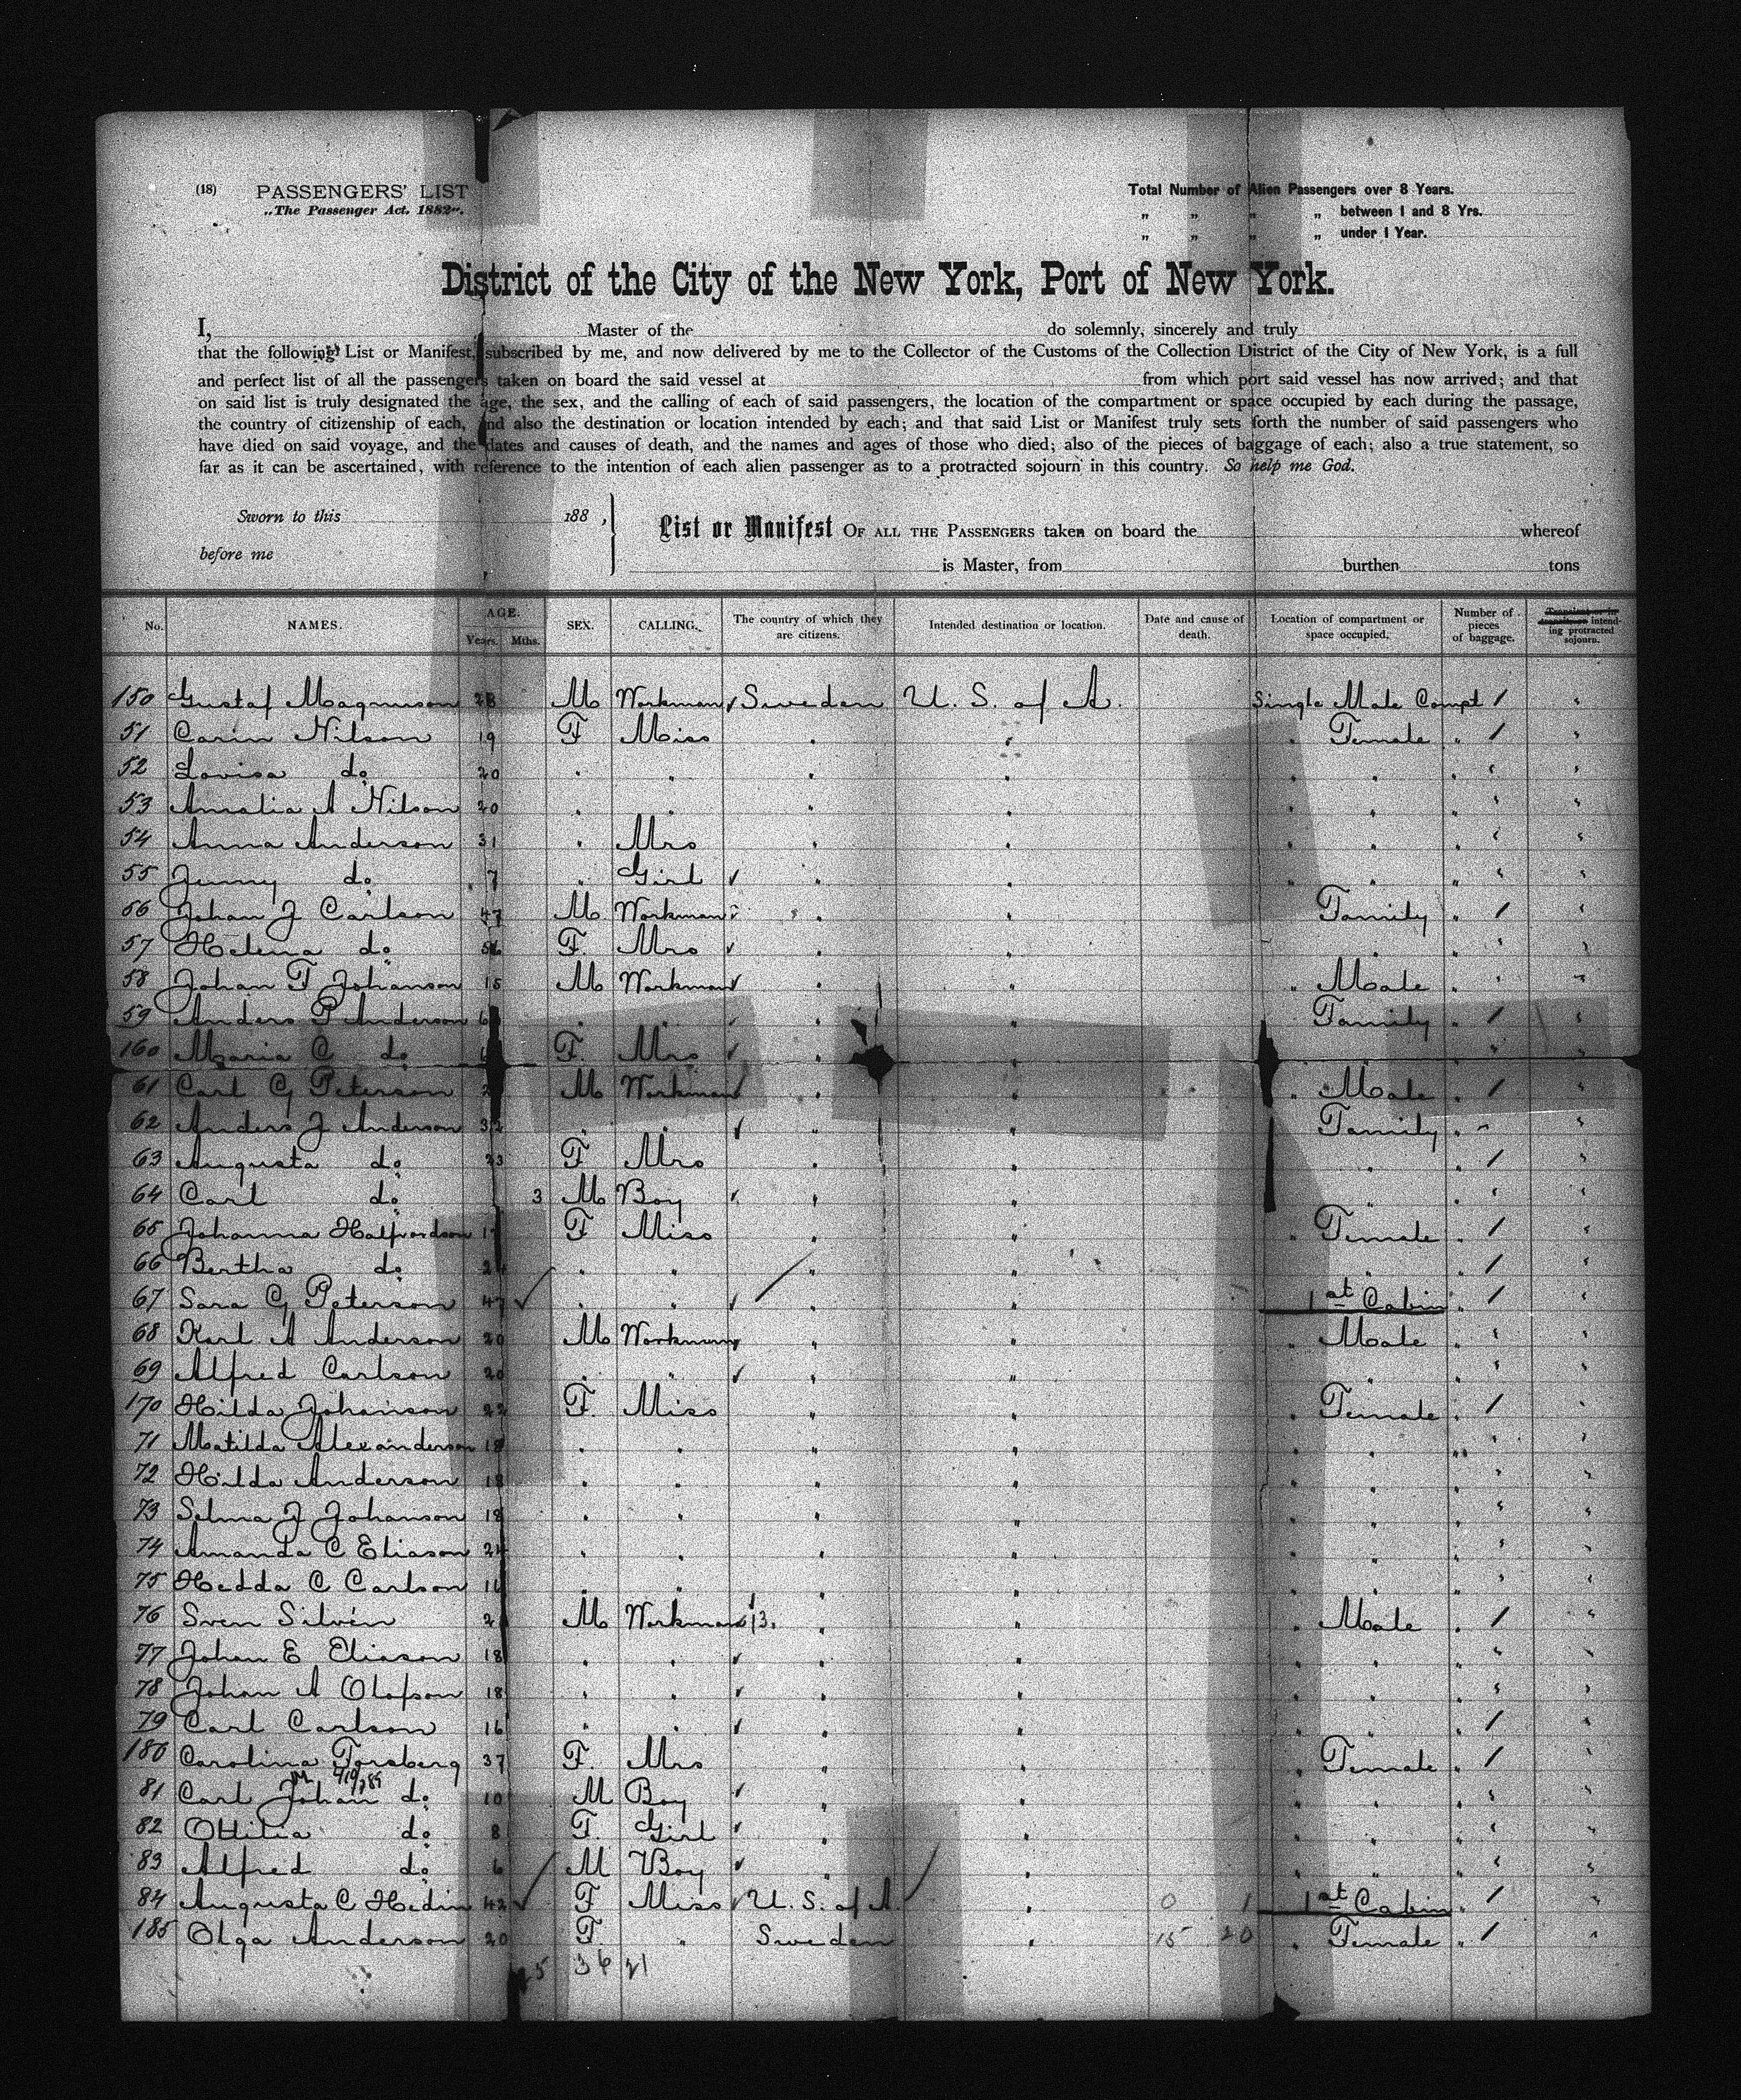 (18) PASSENGERS' LIST
„The Passenger Act. 1882".
Total Number of Alien Passengers over 8 Years.
„ „ „ „ between 1 and 8 Yrs.
„ „ „ „ under 1 Year.
District of the City of the New York, Port of New York.
I, Master of the do solemnly, sincerely and truly
that the following List or Manifest, subscribed by me, and now delivered by me to the Collector of the Customs of the Collection District of the City of New York, is a full
and perfect list of all the passengers taken on board the said vessel at from which port said vessel has now arrived; and that
on said list is truly designated the age, the sex, and the calling of each of said passengers, the location of the compartment or space occupied by each during the passage,
the country of citizenship of each, and also the destination or location intended by each; and that said List or Manifest truly sets forth the number of said passengers who
have died on said voyage, and the dates and causes of death, and the names and ages of those who died; also of the pieces of baggage of each; also a true statement, so
far as it can be ascertained, with reference to the intention of each alien passenger as to a protracted sojourn in this country. So help me God.
Sworn to this 188 ,
before me
List or Manifest OF ALL THE PASSENGERS taken on board the whereof
is Master, from burthen tons
No. NAMES. AGE. Years. Mths. SEX. CALLING. The country of which they are citizens. Intended destination or location. Date and cause of death. Location of compartment or space occupied. Number of pieces of baggage. Transient or in transit or intending protracted sojourn.
150 Gustaf Magnuson 28 M Workman Sweden U. S. of A. Single Male Compt 1 "
51 Carin Nilson 19 F Miss " " " Female " 1 "
52 Lovisa do 20 " " " " " " " "
53 Amalia A Nilson 20 " " " " " " " " "
54 Anna Anderson 31 " Mrs " " " " " " "
55 Jenny do 7 " Girl " " " " " " "
56 Johan J Carlson 47 M Workman " " Family " 1 "
57 Helena do F. Mrs " " " " " "
58 Johan F Johanson 15 M Workman " " " Male " " "
59 Anders P Anderson " " " " Family " 1 "
160 Maria C do F. Mrs " " " " " "
61 Carl G Peterson M Workman " " " Male " 1 "
62 Anders J Anderson 32 " " " " Family " "
63 Augusta do 23 F Mrs " " " " 1 "
64 Carl do 3 M Boy " " " " " "
65 Johanna Halfvordson F Miss " " " Female " 1 "
66 Bertha do " " " " " " " 1 "
67 Sara G Peterson 47 " " " " 1st Cabin " 1 "
68 Karl A Anderson 20 M Workman " " " Male " " "
69 Alfred Carlson 20 " " " " " " " "
170 Hilda Johanson 22 F. Miss " " " Female " 1 "
71 Matilda Alexanderson 18 " " " " " " " " "
72 Hilda Anderson 18 " " " " " " " " "
73 Selma J Johanson 18 " " " " " " " " "
74 Amanda C Eliason 24 " " " " " " " " "
75 Hedda C Carlson " " " " " " " " "
76 Sven Silvén M Workman " " " Male " 1 "
77 Johan E Eliason 18 " " " " " " " " "
78 Johan A Olofson 18 " " " " " " " " "
79 Carl Carlson 16 " " " " " " " 1 "
180 Carolina Forsberg 37 F. Mrs " " " Female " 1 "
81 Carl Johan do 10 M Boy " " " " " " "
82 Ottilia do 8 F. Girl " " " " " " "
83 Alfred do 6 M Boy " " " " " " "
84 Augusta C Hedin 42 F Miss U. S. of A. " 0 1 1st Cabin " 1 "
185 Olga Anderson 20 F. " Sweden " 15 20 " Female " 1 "
36 21